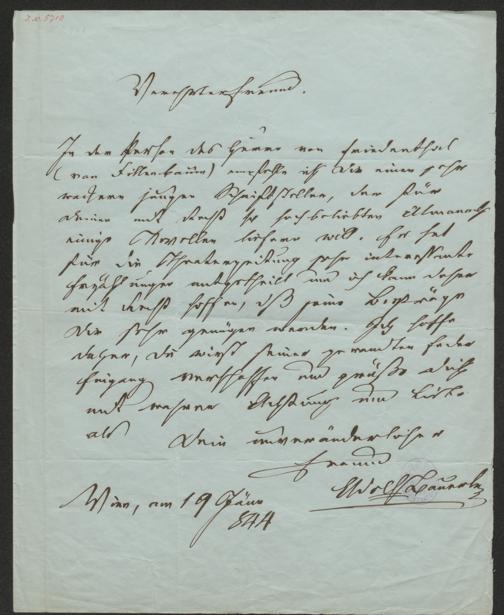 J.N. 5710
Verehrter Freund.
In der Person des Herrn von Friedenthal
(von Tiefenbacher) empfehle ich Dir einen sehr
wackern jungen Schriftsteller, der für
Deinen mit Recht so hochbeliebten Almanach
einige Novellen liefern will. Er hat
für die Theaterzeitung sehr interessante
Erzählungen mitgetheilt und ich kann daher
mit Recht hoffen, daß seine Beyträge
Dir sehr genügen werden. Ich hoffe
daher, Du wirst seiner gewandten Feder
Eingang verschaffen und grüße Dich
mit wahrer Achtung und Liebe
als Dein unveränderlicher
Freund
Adolf Bäuerle
Wien, am 19 Jänn
844